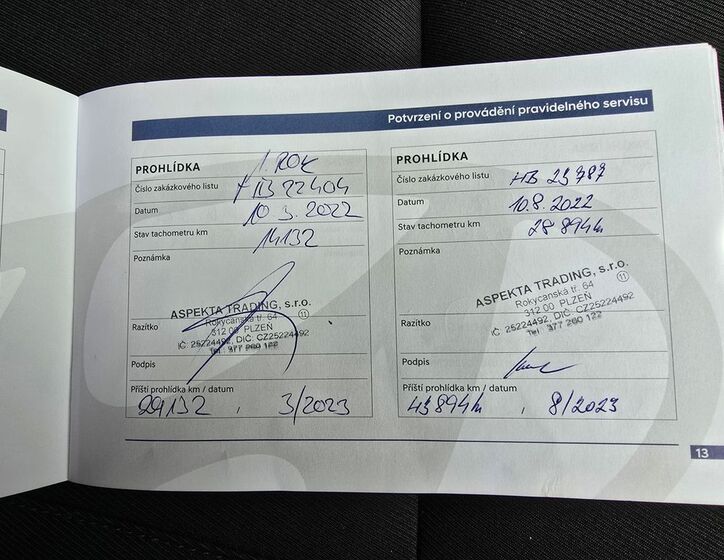 Potvrzení o provádění pravidelného servisu
PROHLÍDKA 1. ROK
Číslo zakázkového listu HB 22404
Datum 10 3. 2022
Stav tachometru km 14132
Poznámka
ASPEKTA TRADING, s.r.o.
Rokycanská tř. 64
312 00 PLZEŇ
11
Razítko
IČ: 25224492, DIČ: CZ25224492
Tel.: 377 260 122
Podpis
Příští prohlídka km / datum
29132, 3/2023
PROHLÍDKA
Číslo zakázkového listu HB 23787
Datum 10.8. 2022
Stav tachometru km 28 894 km
Poznámka
ASPEKTA TRADING, s.r.o.
Rokycanská tř. 64
312 00 PLZEŇ
11
Razítko
IČ: 25224492, DIČ: CZ25224492
Tel.: 377 260 122
Podpis
Příští prohlídka km / datum
43 894 km, 8/2023
13